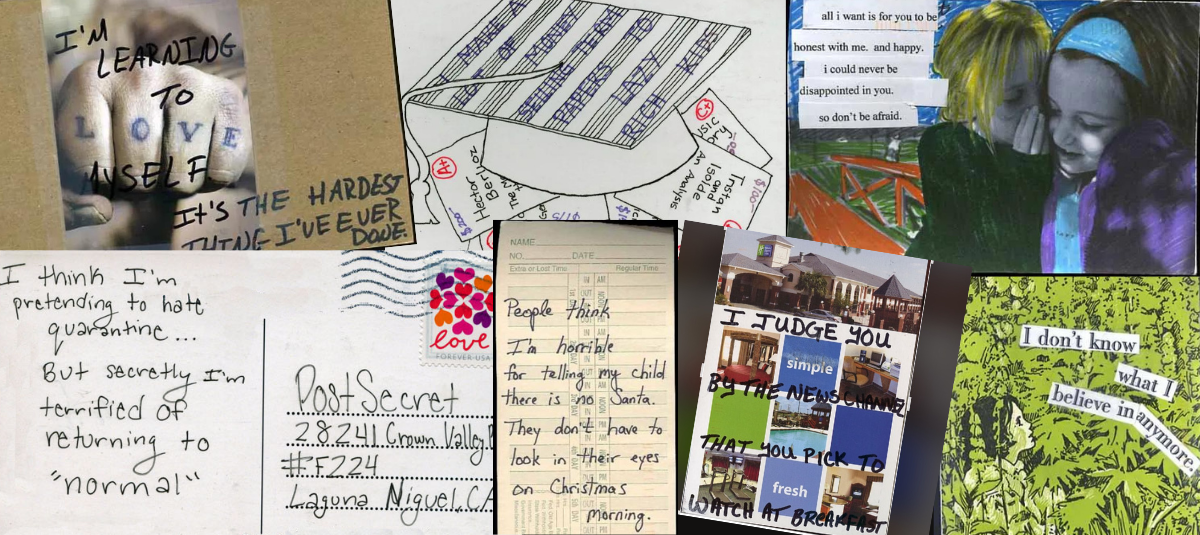 I'M
LEARNING
TO
L O V E
MYSELF
IT'S THE HARDEST
THING I'VE EVER
DONE.
I MAKE A
LOT OF
MONEY
SELLING TERM
PAPERS TO
LAZY
RICH KIDS
A+
Hector
Berlioz
$200
$175
C+
Tristan
and
Isolde
An Analysis
$100
all i want is for you to be
honest with me. and happy.
i could never be
disappointed in you.
so don't be afraid.
I think I'm
pretending to hate
quarantine...
But secretly I'm
terrified of
returning to
"normal"
love
FOREVER USA
PostSecret
28241 Crown Valley
#F224
Laguna Niguel, CA
NAME
NO. DATE
Extra or Lost Time Regular Time
People think
I'm horrible
for telling my child
there is no Santa.
They don't have to
look in their eyes
on Christmas
morning.
I JUDGE YOU
simple
BY THE NEWS CHANNEL
THAT YOU PICK TO
fresh
WATCH AT BREAKFAST
I don't know
what I
believe in anymore.